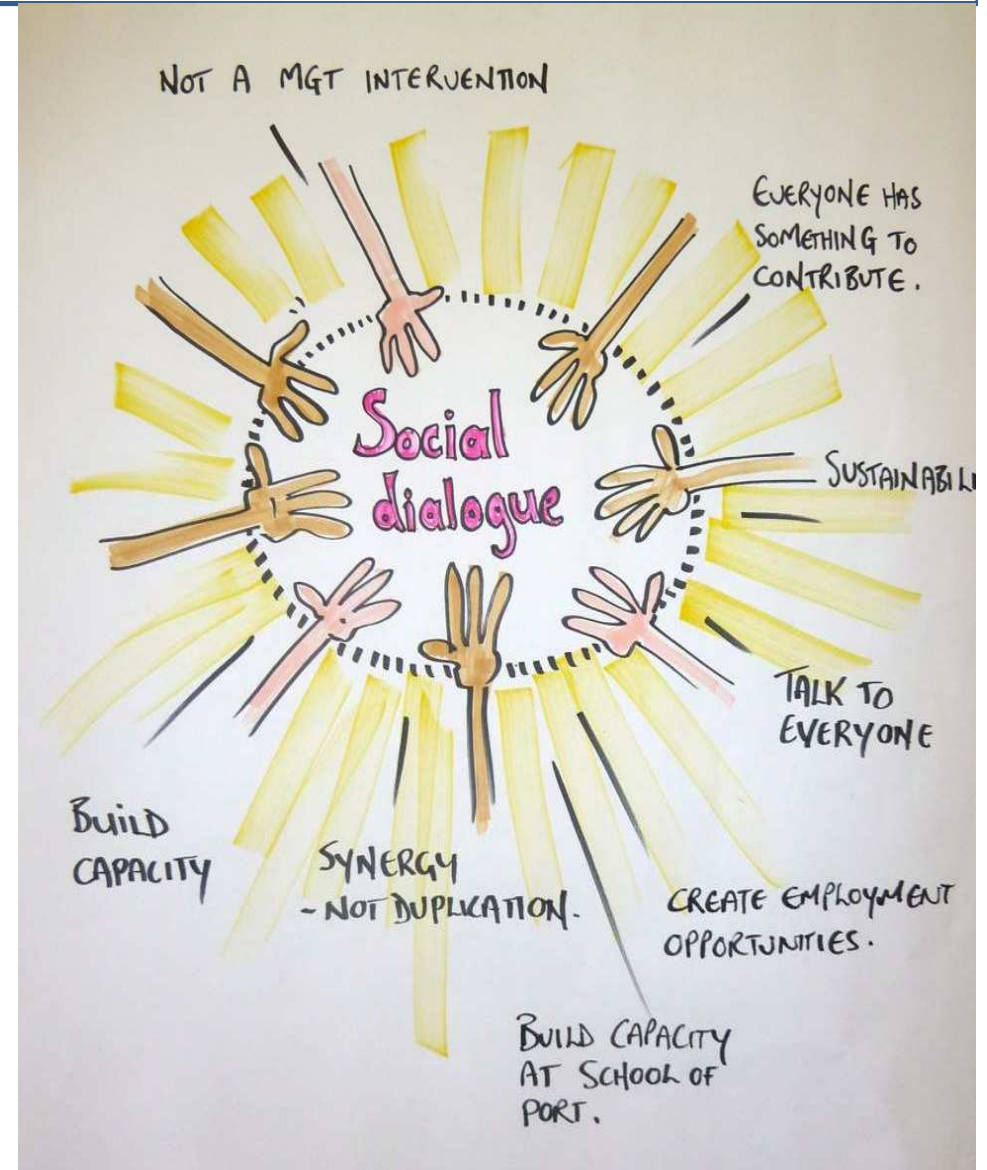 NOT A MGT INTERVENTION
EVERYONE HAS
SOMETHING TO
CONTRIBUTE.
Social
dialogue
SUSTAINABILI
TALK TO
EVERYONE
BUILD
CAPACITY
SYNERGY
- NOT DUPLICATION.
CREATE EMPLOYMENT
OPPORTUNITIES.
BUILD CAPACITY
AT SCHOOL OF
PORT.